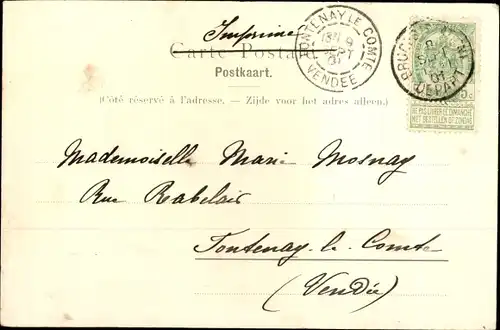 Imprimé
Carte Postale
Postkaart.
(Côté réservé à l'adresse. — Zijde voor het adres alleen.)
FONTENAY LE COMTE
9
SEPT
01
VENDÉE
01
DEPART
5c
NE PAS LIVRER LE DIMANCHE
NIET BESTELLEN OP ZONDAG
Mademoiselle Marie Mosnay
Rue Rabelais
Fontenay-le-Comte
(Vendée)